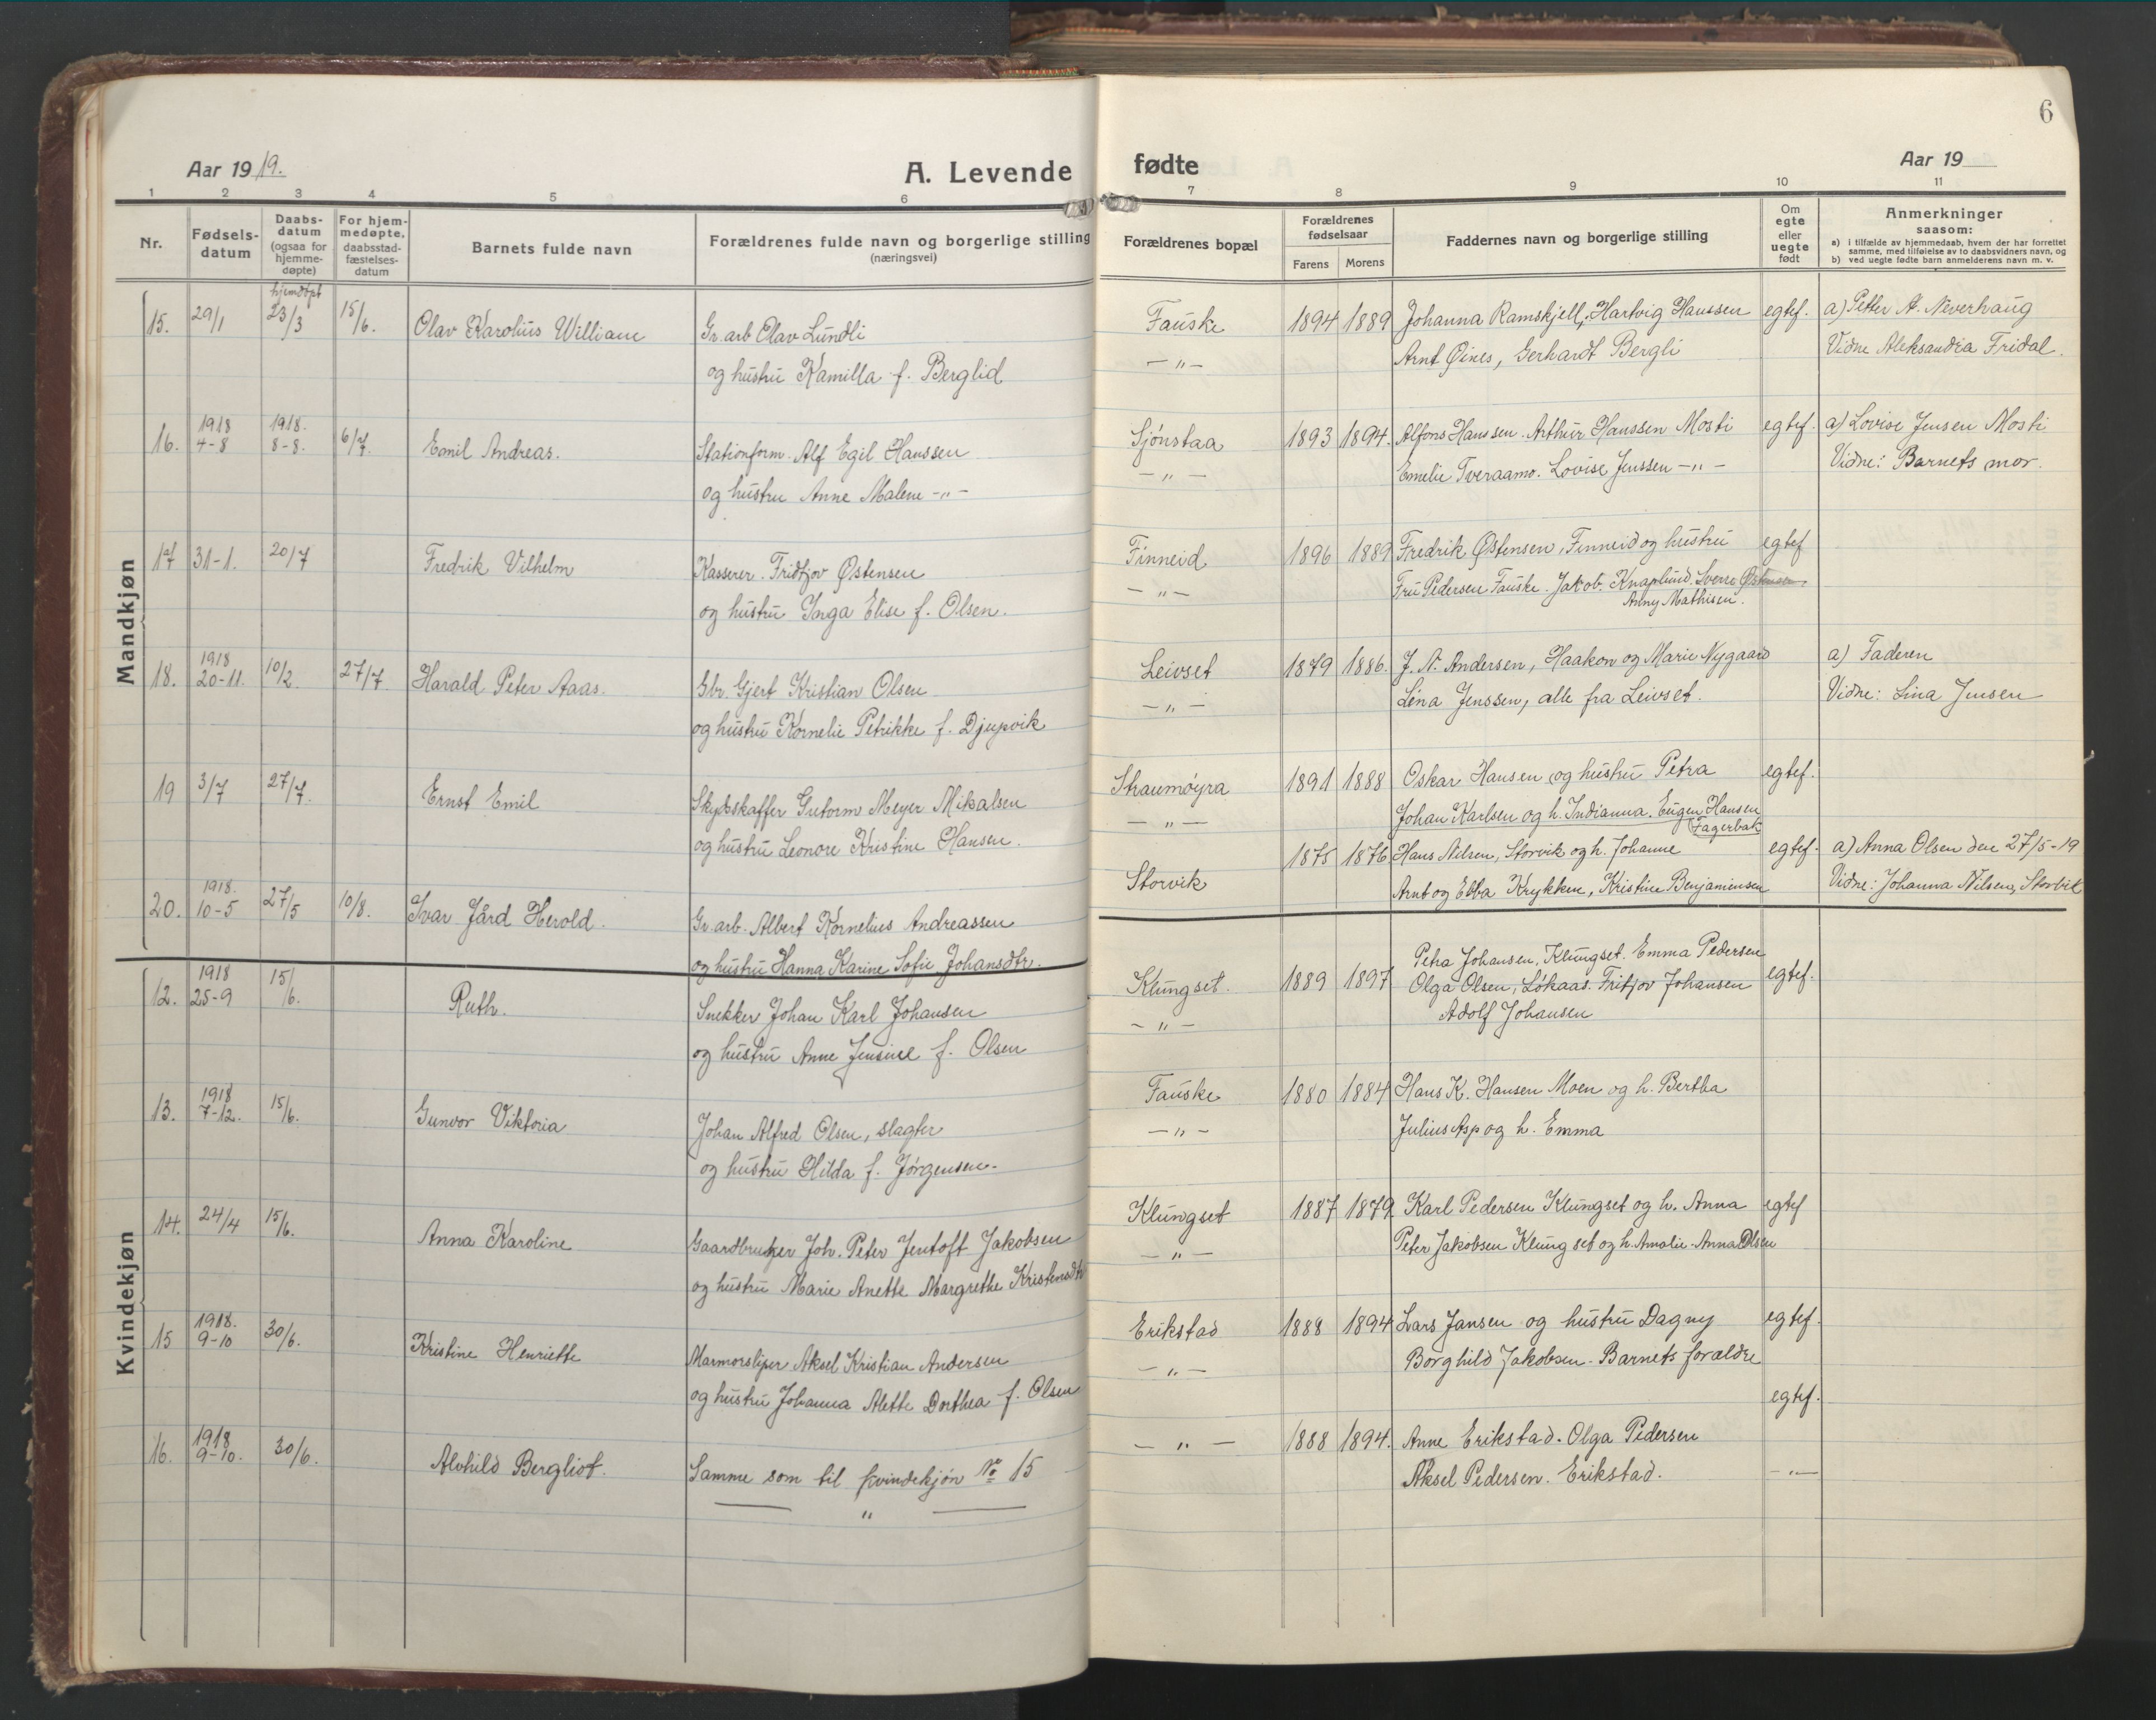 6
Aar 1919.
A. Levende fødte
Aar 19
1 2 3 4 5 6 7 8 9 10 11
Nr.
Fødsels-
datum
Daabs-
datum
(ogsaa for
hjemme-
døpte)
For hjem-
medøpte,
daabsstad-
fæstelses-
datum
Barnets fulde navn
Forældrenes fulde navn og borgerlige stilling
(næringsvei)
Forældrenes bopæl
Forældrenes
fødselsaar
Farens Morens
Faddernes navn og borgerlige stilling
Om
egte
eller
uegte
født
Anmerkninger
saasom:
a) i tilfælde av hjemmedaab, hvem der har forrettet
samme, med tilføielse av to daabsvidners navn, og
b) ved uegte fødte barn anmelderens navn m. v.
Mandkjøn
hjemdøpt
15. 29/1 23/3 15/6. Olav Karolius William Gr. arb Olav Lundli Fauske 1894 1889 Johanna Ramskjell, Hartvig Hanssen egtef. a) Petter A. Neverhaug
og hustru Kamilla f. Berglid - " - Arnt Øines, Gerhardt Bergli Vidne Aleksandra Fridal.
1918 1918.
16. 4-8 8-8. 6/7. Emil Andreas. Stationform. Alf Egil Hanssen Sjønstaa 1893 1894. Alfons Hanssen. Arthur Hanssen Mosti egtef. a) Lovise Jensen Mosti
og hustru Anne Malene - " - - " - Emelie Tveraamo. Lovise Jenssen - " - Vidne: Barnets mor.
17 31-1. 20/7 Fredrik Vilhelm Kasserer. Fridtjov Østensen Finneid 1896 1889 Fredrik Østensen, Finneid og hustru egtef
og hustru Inga Elise f. Olsen. - " - Fru Pedersen Fauske. Jakob Knaplund. Sverre Østensen.
Anny Mathisen.
1918
18. 20-11. 10/2 27/7 Harald Peter Aaas. Gbr. Gjert Kristian Olsen Leivset 1879 1886. J. A. Andersen, Haakon og Marie Nygaard a) Faderen
og hustru Kornelie Petrikke f. Djupvik - " - Lena Jenssen, alle fra Leivset. Vidne: Lina Jensen
19 3/7 27/7. Ernst Emil Skydskaffer Gutorm Meyer Mikalsen Straumøyra 1891 1888 Oskar Hansen og hustru Petra egtef.
og hustru Leonore Kristine Hansen. - " - Johan Karlsen og h. Indianna. Eugen Hansen
Fagerbak
1918.
20. 10-5 27/5 10/8. Ivar Jård Herold. Gr. arb. Albert Kornelius Andreassen Storvik 1875 1876 Hans Nilsen, Storvik og h. Johanne egtef. a) Anna Olsen den 27/5-19
og hustru Hanna Karine Sofie Johansdtr. Arnt og Ebba Krykken, Kristine Benjaminsen Vidne: Johanna Nilsen, Storvik
Kvindekjøn
1918 Petra Johansen, Klungset. Emma Pedersen
12. 25-9 15/6. Ruth. Snekker Johan Karl Johansen Klungset. 1889 1897 Olga Olsen, Løkaas. Fritjov Johansen egtef.
og hustru Anne Jensine f. Olsen - " - Adolf Johansen
1918
13. 7-12. 15/6. Gunvor Viktoria Johan Alfred Olsen, slagter Fauske 1880 1884 Hans K. Hansen Moen og h. Bertha
og hustru Hilda f. Jørgensen. - " - Julius Asp og h. Emma
14. 24/4 15/6. Anna Karoline Gaardbruker Joh. Peter Jentoft Jakobsen Klungset 1887 1879 Karl Pedersen Klungset og h. Anna egtef
og hustru Marie Anette Margrethe Kristensdtr - " - Peter Jakobsen Klungset og h. Amalie. Anna Olsen
1918.
15 9-10 30/6. Kristine Henriette Marmorsliper Aksel Kristian Andersen Erikstad 1888 1894 Lars Jansen og hustru Dagny egtef.
og hustru Johanna Alette Dorthea f. Olsen - " - Borghild Jakobsen. Barnets forældre
egtef.
1918
16. 9-10. 30/6. Alvhild Bergliot. Samme som til kvindekjøn No 15 - " - 1888 1894. Anne Erikstad. Olga Pedersen
" Aksel Pedersen. Erikstad. - " -